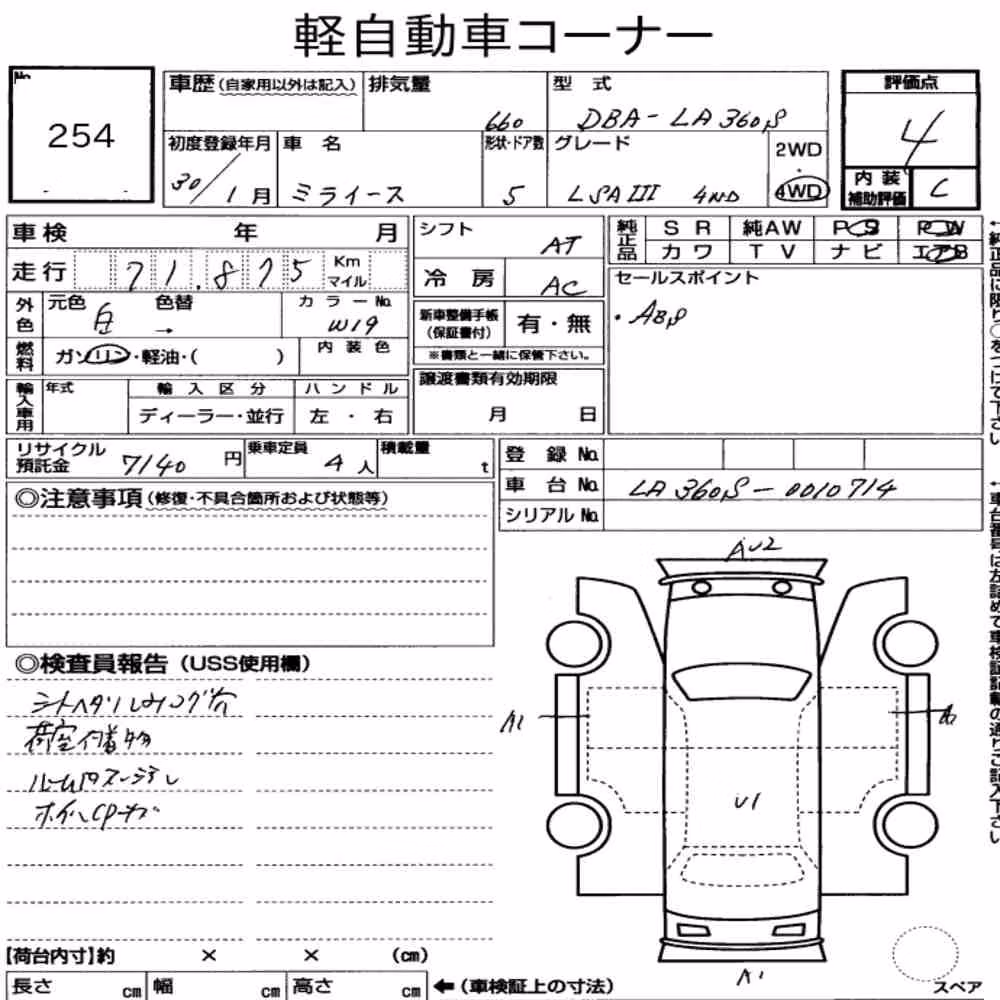 軽自動車コーナー
No. 254
車歴(自家用以外は記入) 排気量 660 型 式 DBA-LA360S
評価点 4
初度登録年月 30/1月 車 名 ミライース 形状・ドア数 5 グレード LSAIII 4WD 2WD・4WD
内装補助評価 C
車検 年 月
シフト AT
純正品 SR 純AW PS PW
カワ TV ナビ エアB
走行 71,875 Km マイル
冷房 AC
セールスポイント
・ABS
外色 元色 白 色替 → カラーNo. W19
新車整備手帳(保証書付) 有・無
※書類と一緒に保管下さい。
燃料 ガソリン・軽油・( ) 内装色
輸入車用 年式 輸入区分 ハンドル
ディーラー・並行 左・右
譲渡書類有効期限
月 日
リサイクル預託金 7140円 乗車定員 4人 積載量 t
登録No.
車台No. LA360S-0010714
シリアルNo.
◎注意事項(修復・不具合箇所および状態等)
AU2
◎検査員報告(USS使用欄)
荷室付着物
A1
U1
A1
【荷台内寸】約 × × (cm)
長さ cm 幅 cm 高さ cm ←(車検証上の寸法)
スペア
←純正品に限り○をつけて下さい
←車台番号は左詰めで車検証記載の通りご記入下さい